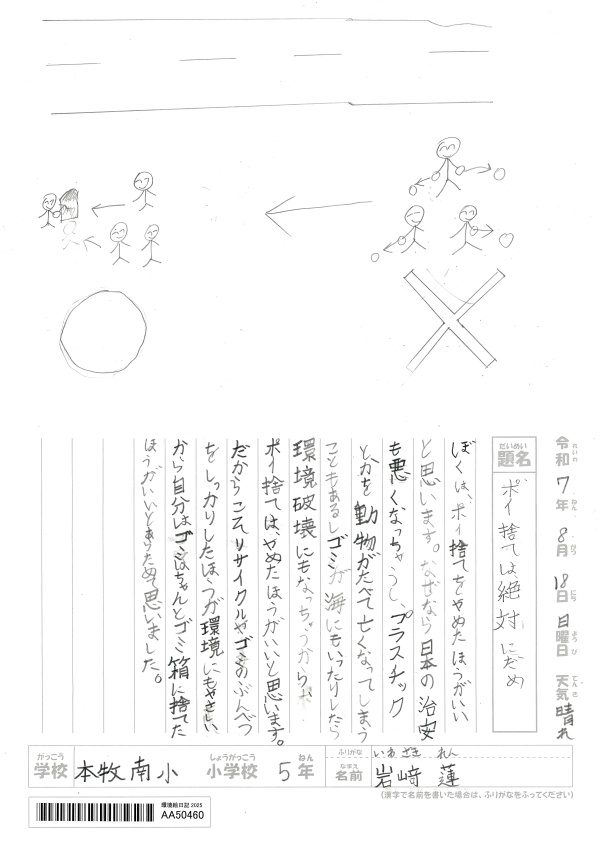 令和7年8月18日日曜日 天気晴れ
題名 ポイ捨ては絶対にだめ
ぼくは、ポイ捨てをやめたほうがいい
と思います。なぜなら日本の治安
も悪くなっちゃうし、プラスチック
とかを動物がたべて亡くなってしまう
こともあるしゴミが海にもいったりしたら
環境破壊にもなっちゃうからだ
ポイ捨ては、やめたほうがいいと思います。
だからこそリサイクルやゴミのぶんべつ
をしっかりしたほうが環境にもやさしい
から自分はゴミはちゃんとゴミ箱に捨てた
ほうがいいとあらためて思いました。
学校 本牧南小 小学校 5年
ふりがな いわざき れん
名前 岩﨑 蓮
(漢字で名前を書いた場合は、ふりがなをふってください)
環境絵日記 2025
AA50460